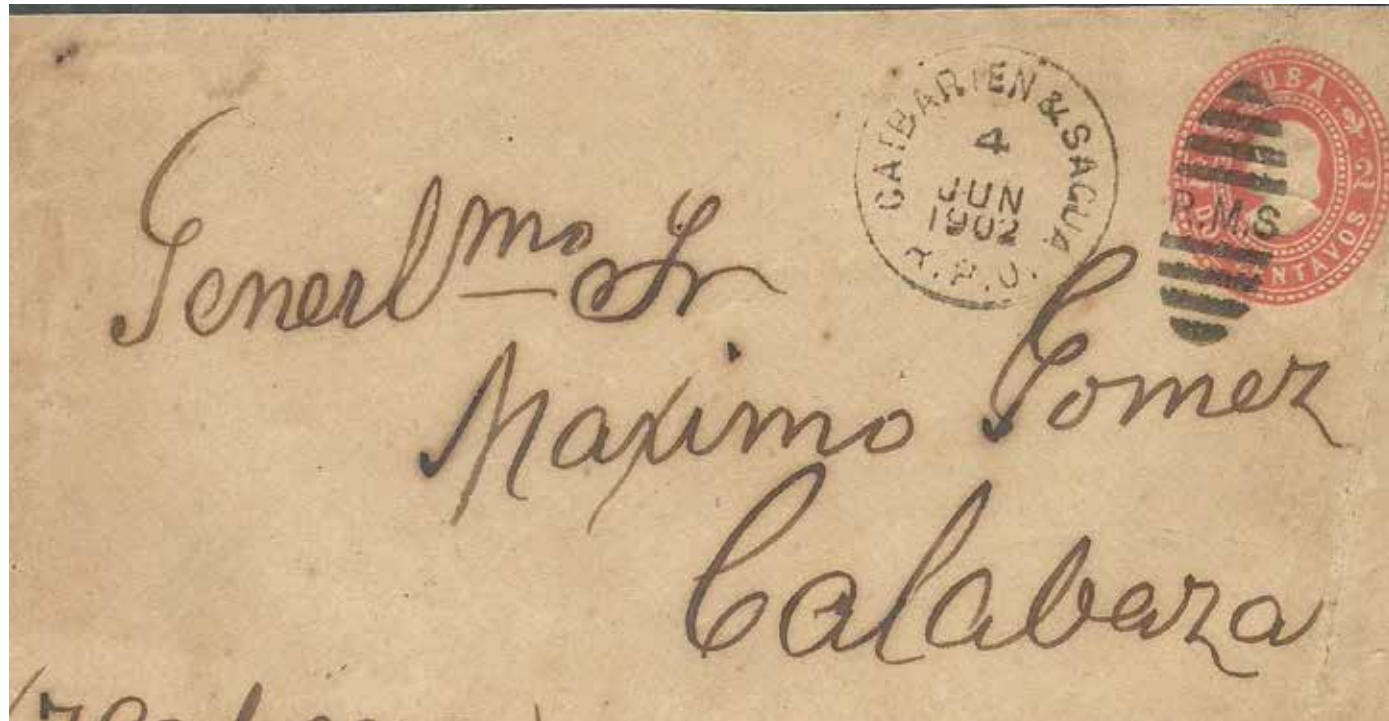 CAIBARIEN & SAGUA
4
JUN
1902
R.P.O.
CUBA
2
CENTAVOS
R.M.S
Generl^mo Sr
Maximo Gomez
Calabaza